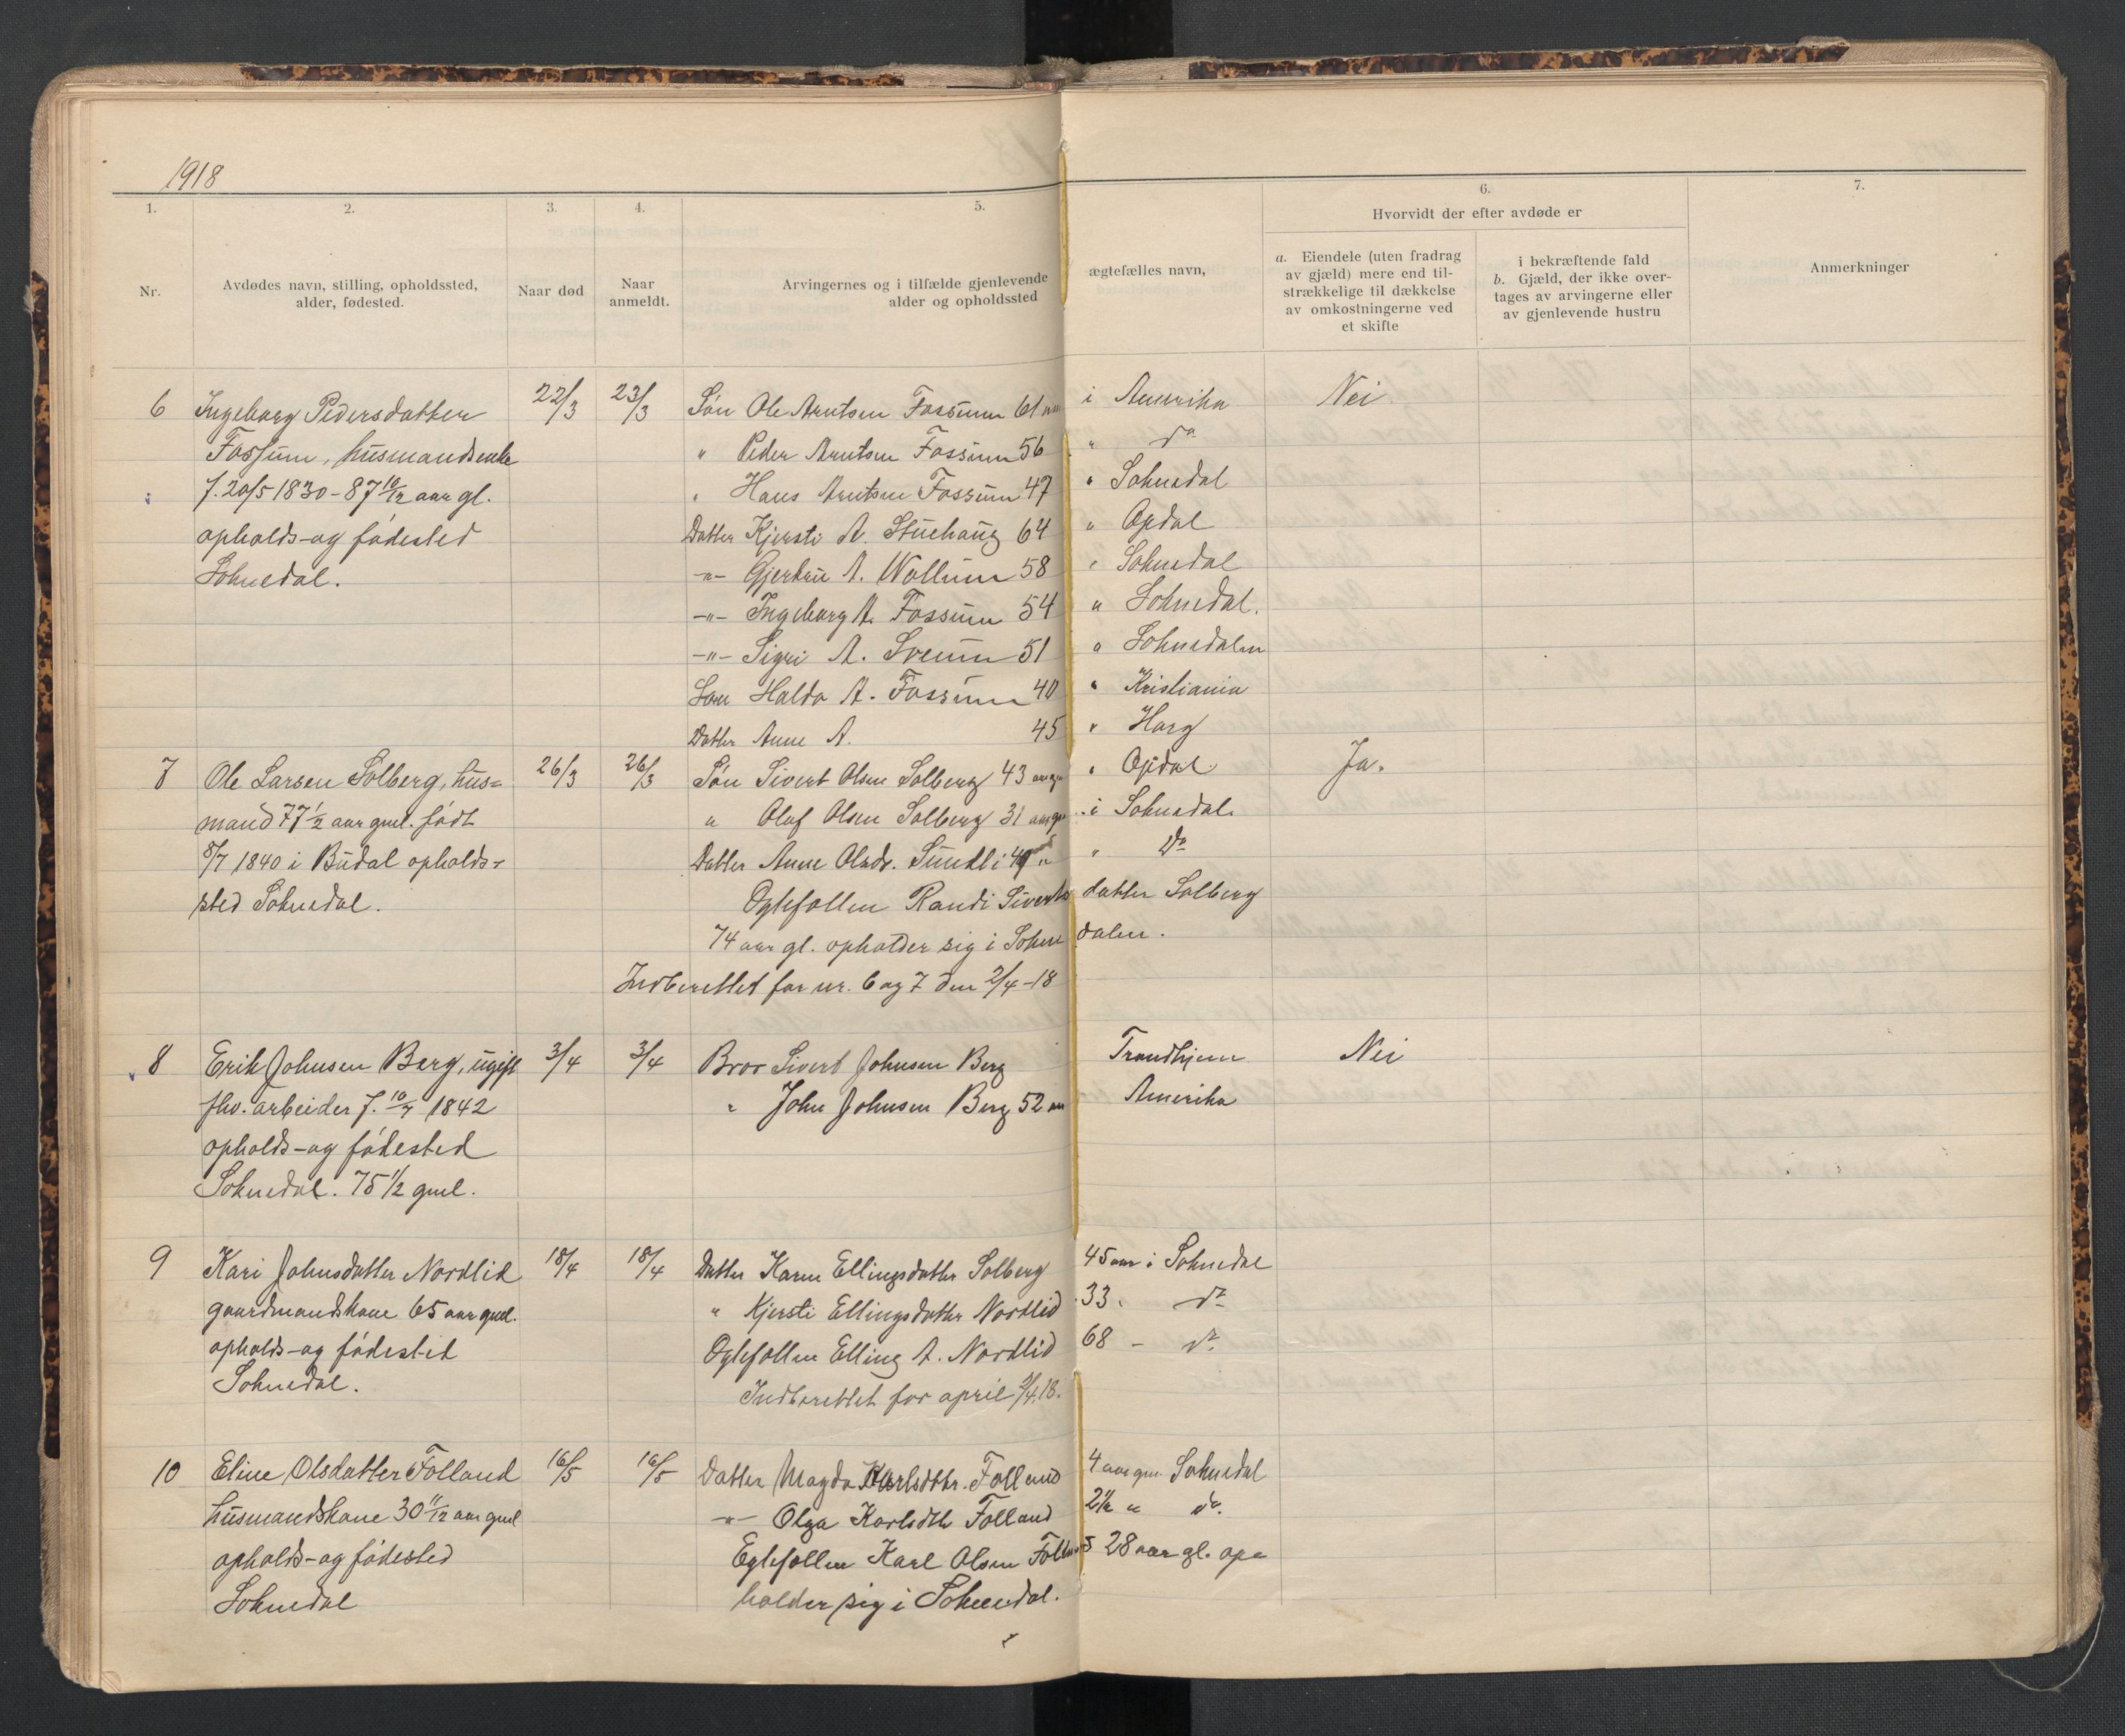 1918
1. 2. 3. 4. 5. 6. 7.
Hvorvidt der efter avdøde er
Nr.
Avdødes navn, stilling, opholdssted,
alder, fødested.
Naar død
Naar
anmeldt.
Arvingernes og i tilfælde gjenlevende ægtefælles navn,
alder og opholdssted
a. Eiendele (uten fradrag
av gjæld) mere end til-
strækkelige til dækkelse
av omkostningerne ved
et skifte
i bekræftende fald
b. Gjæld, der ikke over-
tages av arvingerne eller
av gjenlevende hustru
Anmerkninger
6 Ingeborg Pedersdatter 22/3 23/3 Søn Ole Arntsen Fossum 61 aar i Amerika Nei
Fossum, husmandsenke " Peder Arntsen Fossum 56 " do
f. 20/5 1830 - 87 10/12 aar gl. " Hans Arntsen Fossum 47 " Soknedal
opholds- og fødested Datter Kjersti A. Stuehaug 64 " Opdal
Soknedal. -"- Gjertrue A. Wollum 58 " Soknedal
-"- Ingeborg A. Fossum 54 " Soknedal.
-"- Sigri A. Sveum 51 " Soknedalen
Søn Haldo A. Fossum 40 " Kristiania
Datter Anne A. 45 " Horg
7 Ole Larsen Solberg, hus= 26/3 26/3 Søn Sivert Olsen Solberg 43 aar gl " Opdal. Ja.
mand 77 1/2 aar gml. født " Olaf Olsen Solberg 31 aar gl i Soknedal.
8/7 1840 i Budal opholds- Datter Anne Olsdr. Sundli " " do
sted Soknedal. Egtefellen Randi Sivertsdatter Solberg
74 aar gl. opholder sig i Soknedalen.
Indberettet for nr. 6 og 7 den 2/4-18
8 Erik Johnsen Berg, ugift 3/4 3/4 Bror Sivert Johnsen Berg Trondhjem Nei
fhv. arbeider f. 10/7 1842 " John Johnsen Berg 52 aar Amerika
opholds- og fødested
Soknedal. 75 1/2 gml.
9 Kari Johnsdatter Nordlid 18/4 18/4 Datter Karen Ellingsdatter Solberg 45 aar i Soknedal
gaardmandskone 65 aar gml. " Kjersti Ellingsdatter Nordlid 33 " do
opholds- og fødested Egtefellen Elling A. Nordlid 68 - do
Soknedal.
Indberettet for april
10 Eline Olsdatter Folland 16/5 16/5 Datter Magda Karlsdtr. Folland 4 aar gm. Soknedal
husmandskone 30 11/12 aar gml -"- Olga Karlsdtr Folland 2 1/2 " do.
opholds- og fødested Egtefellen Karl Olsen Folland 28 aar gl. op=
Soknedal holder sig i Soknedal.